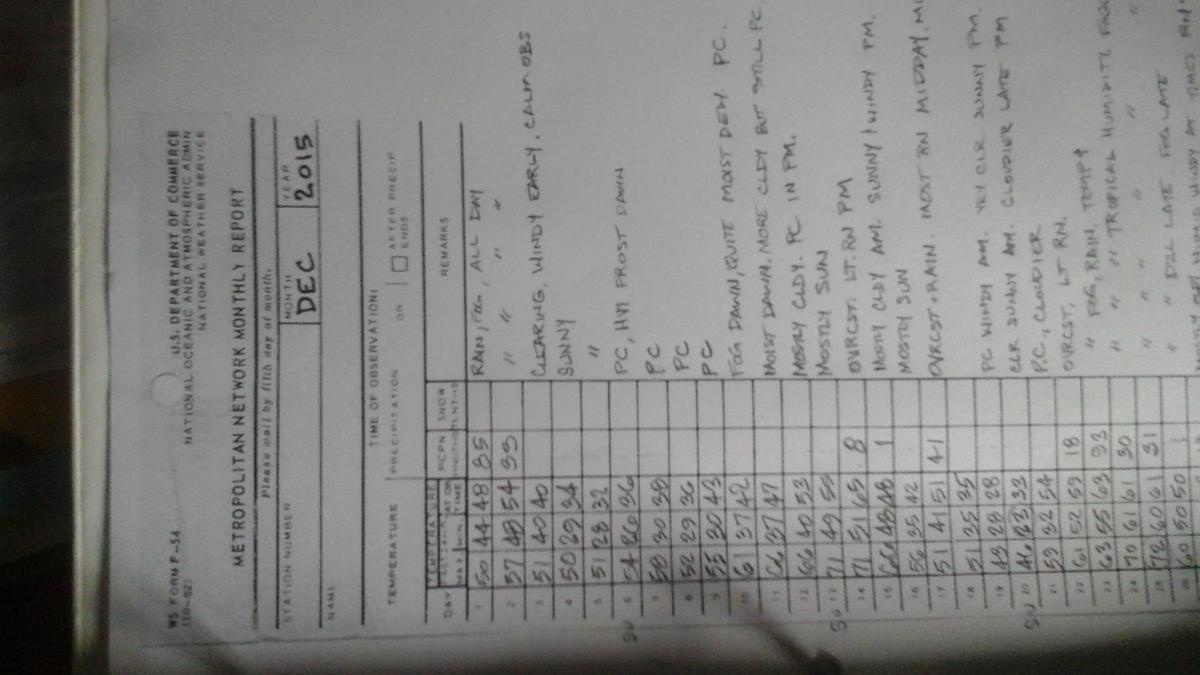 WS FORM F-34
U.S. DEPARTMENT OF COMMERCE
NATIONAL OCEANIC AND ATMOSPHERIC ADMIN
NATIONAL WEATHER SERVICE
METROPOLITAN NETWORK MONTHLY REPORT
Please mail by fifth day of month.
STATION NUMBER MONTH DEC YEAR 2015
NAME
TIME OF OBSERVATION:
TEMPERATURE PRECIPITATION OR AFTER PRECIP ENDS
TEMPERATURE
DAY MAX MIN. TIME PCPN SNOW REMARKS
1 50 44 48 85 RAIN, FOG, ALL DAY
2 57 48 54 33 " " " "
3 51 40 40 CLEARING, WINDY EARLY, CALM OBS
4 50 29 34 SUNNY
5 51 28 32 "
SU 6 54 26 36 PC, HVY FROST DAWN
7 58 30 38 PC
8 52 29 36 PC
9 55 30 43 PC
10 61 37 42 FOG DAWN, QUITE MOIST DEW. PC.
11 66 37 47 MOIST DAWN, MORE CLDY BUT STILL PC
12 66 40 53 MOSTLY CLDY. PC IN PM.
SU 13 71 49 55 MOSTLY SUN
14 71 51 65 8 OVRCST. LT. RN PM
15 66 48 48 1 MOSTLY CLDY AM. SUNNY + WINDY PM.
16 56 35 42 MOSTLY SUN
17 51 41 51 41 OVRCST + RAIN. MOST RN MIDDAY,
18 51 35 35 PC WINDY AM. VRY CLR SUNNY PM.
19 43 28 28 CLR SUNNY AM. CLOUDIER LATE PM
SU 20 46 23 33 P.C., CLOUDIER
21 59 32 54 OVRCST, LT RN.
22 61 52 59 18 " FOG, RAIN, TEMP↑
23 63 55 63 93 " " " TROPICAL HUMIDITY. FOG
24 70 61 61 30 " " " " "
25 72 60 61 31 " DZL LATE FOG LATE
26 60 50 50 1 WINDY AT TIMES